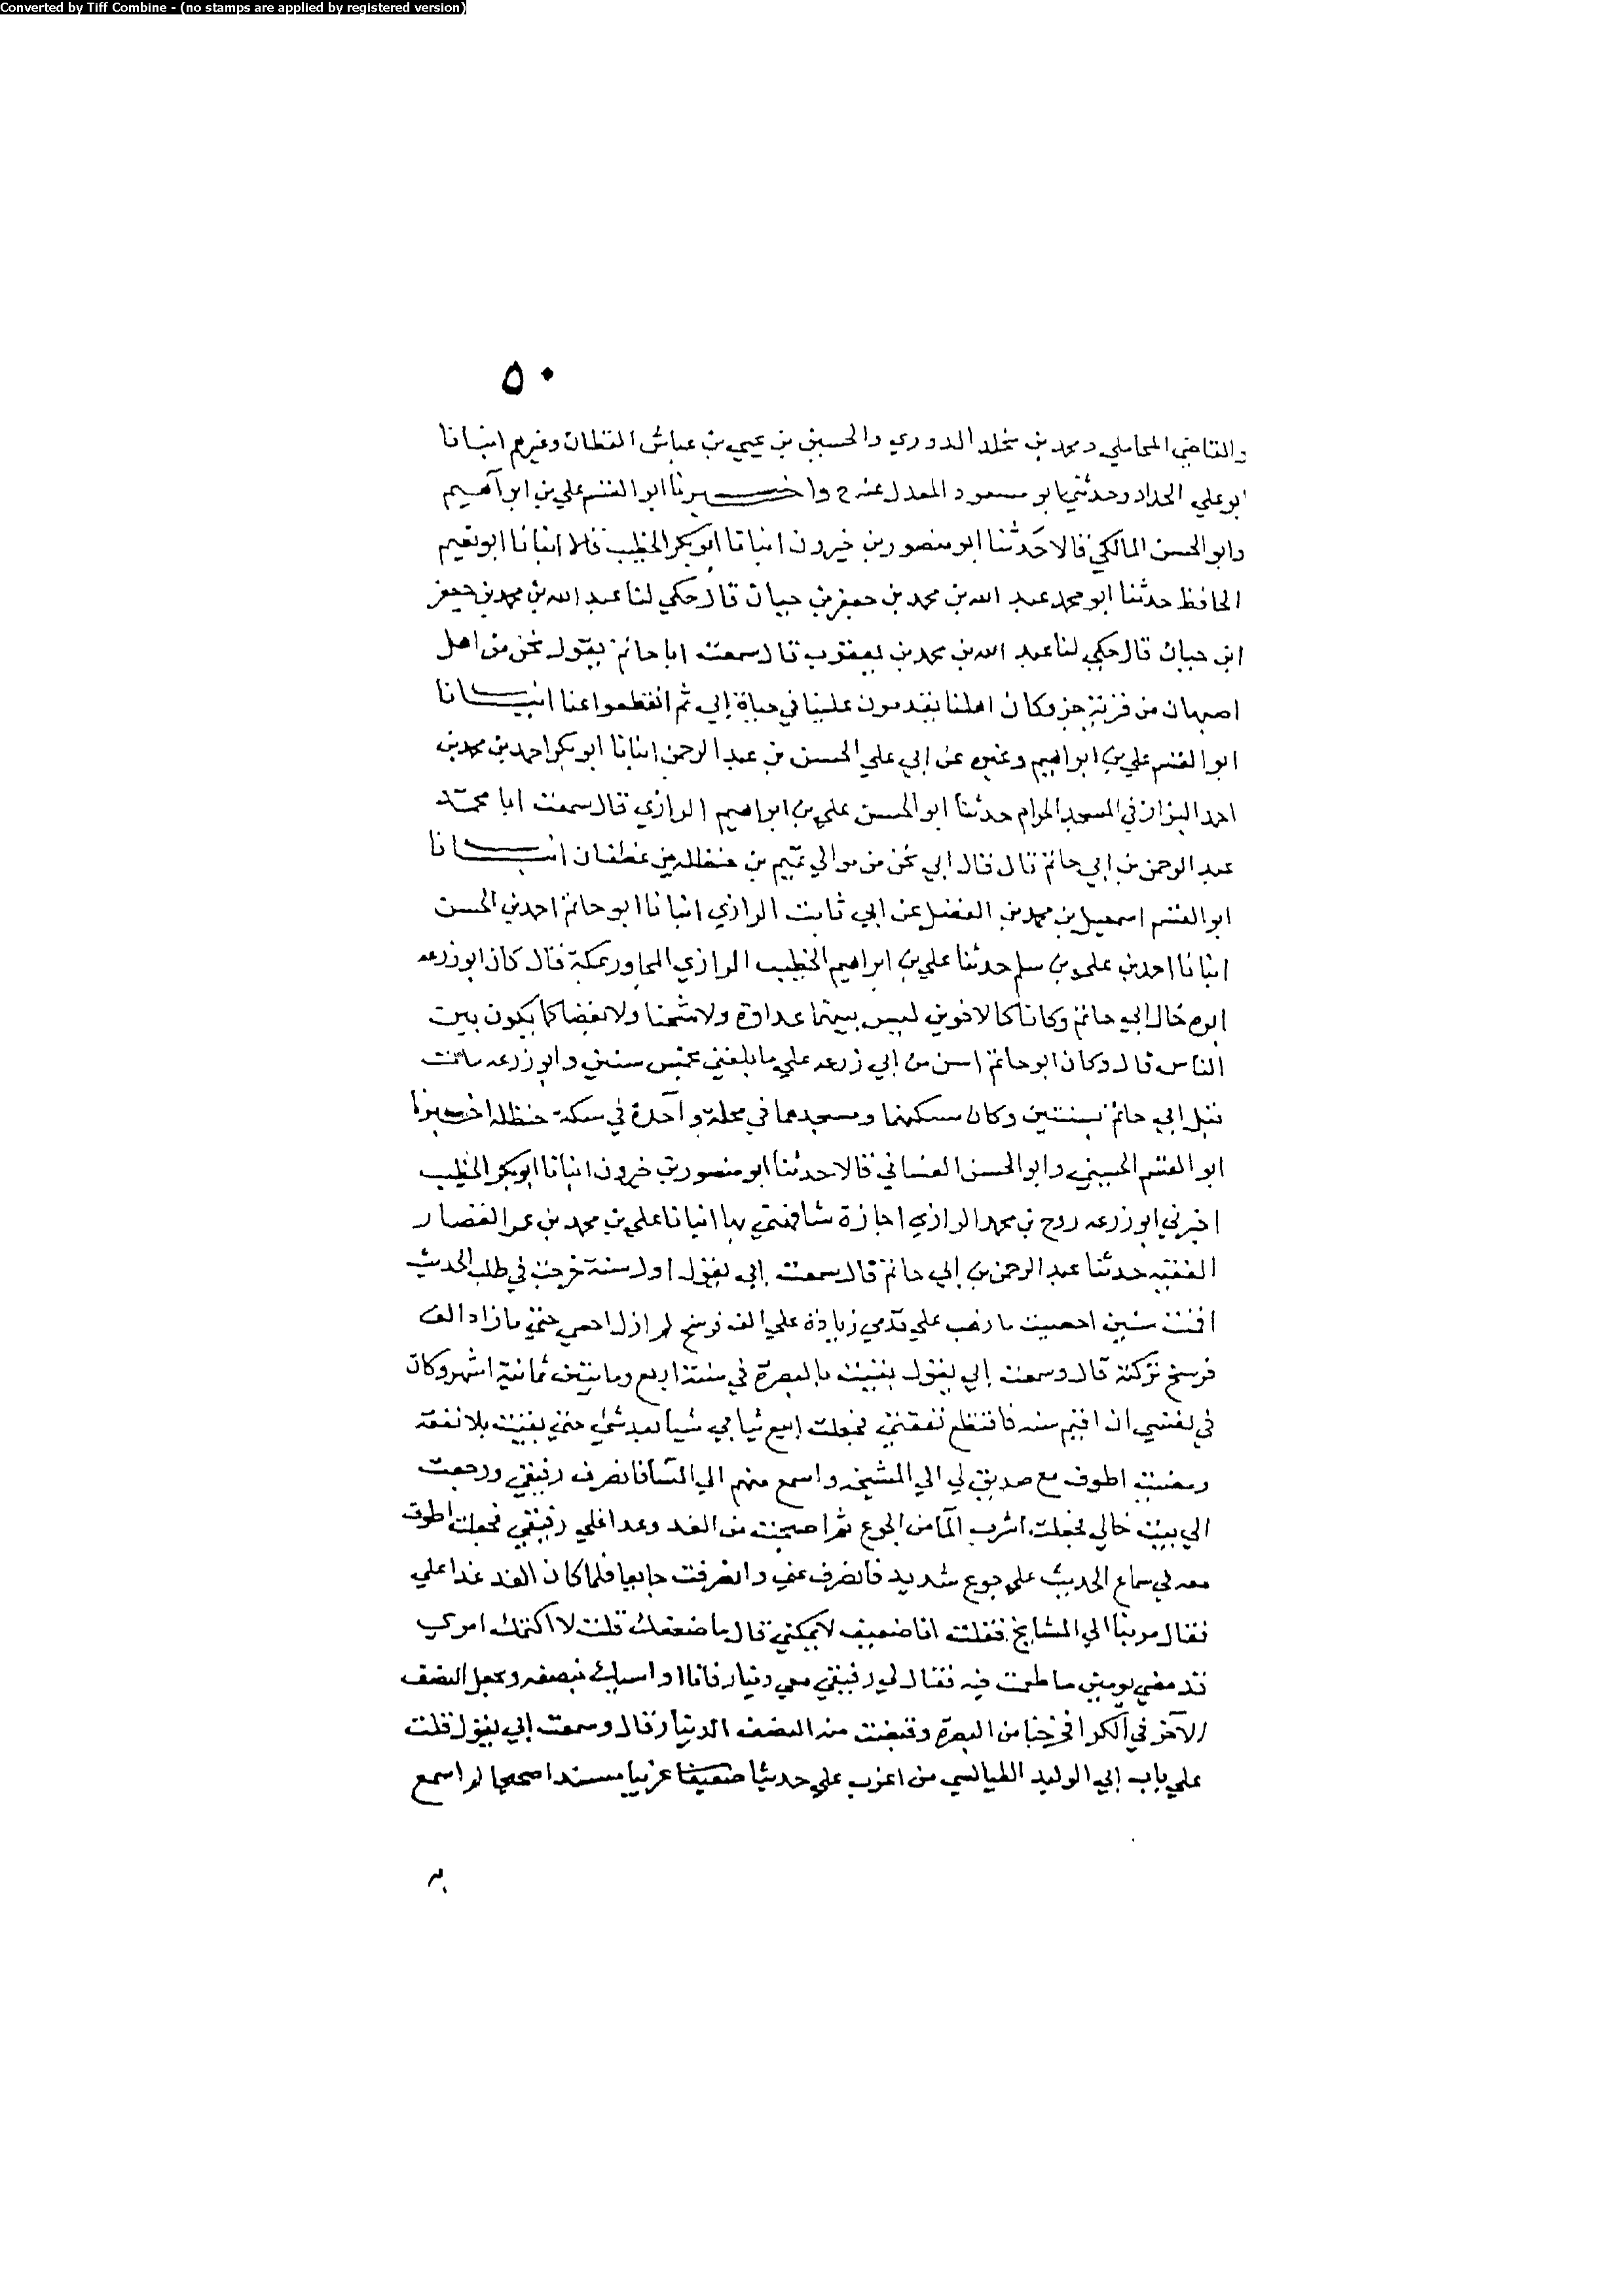 Converted by Tiff Combine - (no stamps are applied by registered version)
٥٠
والقاضي المحاملي ومحمد بن مخلد الدوري والحسين بن يحيى بن عياش القطان وغيرهم انبانا
ابو علي الحداد وحدثني ابو مسعود المعدل عنه ح واخبرنا ابو القسم علي بن ابرآهيم
وابو الحسن المالكي قالا حدثنا ابو منصور بن خيرون انبانا ابو بكر الخطيب قالا انبانا ابو نعيم
الحافظ حدثنا ابو محمد عبد الله بن محمد بن جعفر بن حيان قال حكي لنا عبد الله بن محمد بن جعفر
ابن حيان قال حكي لنا عبد الله بن محمد بن يعقوب قال سمعت ابا حاتم يقول نحن من اهل
اصبهان من قرية جز وكان اهلنا يقدمون علينا في حياة ابي ثم انقطعوا عنا انبـانا
ابو القسم علي بن ابراهيم وغيره عن ابي علي الحسن بن عبد الرحمن انبانا ابو بكر احمد بن محمد بن
احمد البزاز في المسجد الحرام حدثنا ابو الحسن علي بن ابراهيم الرازي قال سمعت ابا محمد
عبد الرحمن بن ابي حاتم قال قال ابي نحن من موالي تميم بن حنظله من غطفان انبـانا
ابو القسم اسمعيل بن محمد بن الفضل عن ابي ثابت الرازي انبانا ابو حاتم احمد بن الحسن
انبانا احمد بن علي بن سلم حدثنا علي بن ابراهيم الخطيب الرازي المجاور بمكة قال كان ابو زرعه
ابوه خال ابي حاتم وكانا كالاخوين ليس بينهما عداوة ولا شحنا ولا بغضا كما يكون بين
الناس قال وكان ابو حاتم اسن من ابي زرعه علي ما بلغني بخمس سنين وابو زرعه مات
قبل ابي حاتم بسنتين وكان مسكنهما ومسجدهما في محلة وآحدة في سكة حنظله اخبرنا
ابو القسم الحسيني وابو الحسن الغساني قالا حدثنا ابو منصور بن خيرون انبانا ابو بكر الخطيب
اخبرني ابو زرعه روح بن محمد الرازي اجازة شافهني بها انبانا علي بن محمد بن عمر القصار
الفقيه حدثنا عبد الرحمن بن ابي حاتم قال سمعت ابي يقول اول سنة خرجت في طلب الحديث
اقمت سنين احصيت ما مشيت علي قدمي زيادة علي الف فرسخ لم ازل احصي حتي ما زاد الف
فرسخ تركته قال وسمعت ابي يقول بقيت بالبصرة في سنة اربع وماتين ثمانية اشهر وكان
في نفسي ان اقيم سنه فانقطع نفقتي فجعلت ابيع ثيابي شيا بعد شئ حتي بقيت بلا نفقة
ومضيت اطوف مع صديق لي الي المشيخه واسمع منهم الي المسآ فانصرف رفيقي ورجعت
الي بيت خالي فجعلت اشرب المآ من الجوع ثم اصبحت من الغد وغدا علي رفيقي فجعلت اطوف
معه في سماع الحديث علي جوع شديد فانصرف عني وانصرفت جايعا فلما كان الغد غدا علي
فقال مر بنا الي المشايخ فقلت انا ضعيف لا يمكني قال ما ضعفك قلت لا اكتمك امري
قد مضي يومين ما طعمت فيه فقال لي رفيقي معي دينار فانا اواسيك بنصفه ونجعل النصف
الآخر في الكرا فخرجنا من البصرة وقبضت منه النصف الدينار قال وسمعت ابي يقول قلت
علي باب ابي الوليد الطيالسي من اغرب علي حديثا ضعيفا غريبا مسندا صحيحا لم اسمع
به